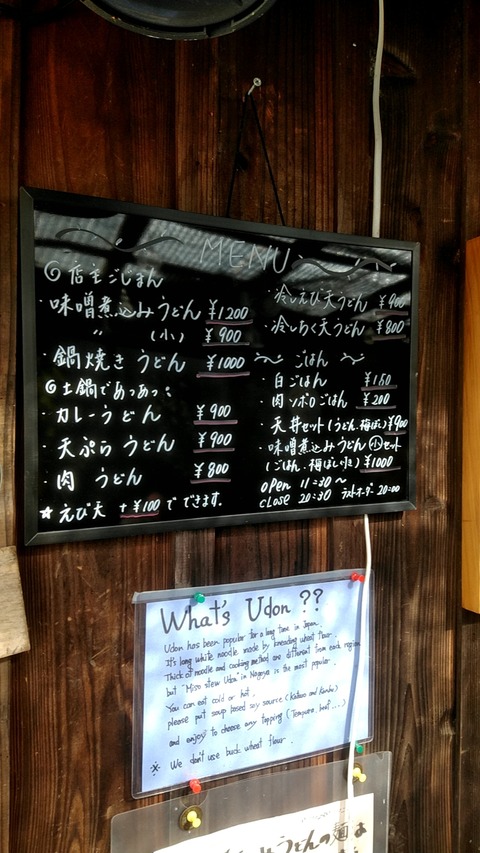 MENU
◎店主ごじまん
・味噌煮込みうどん ¥1200
〃 (小) ¥900
・鍋焼き うどん ¥1000
◎土鍋であつあつ!
・カレーうどん ¥900
・天ぷらうどん ¥900
・肉 うどん ¥800
☆えび天 +¥100でできます。
・冷しえび天うどん ¥900
・冷しちく天うどん ¥800
〜 ごはん 〜
・白ごはん ¥150
・肉ソボロごはん ¥200
・天丼セット(うどん.梅ぼし) ¥900
・味噌煮込みうどん小セット
(ごはん.梅ぼし付き) ¥1000
OPEN 11:30〜
CLOSE 20:30 ラストオーダー 20:00
What's Udon ??
Udon has been popular for a long time in Japan.
It's long white noodle made by kneading wheat flour.
Thick of noodle and cooking method are different from each region
but "Miso stew Udon" in Nagoya is the most popular.
You can eat cold or hot,
please put soup based soy source (Katsuo and Konbu)
and enjoy to choose any topping (Tempura, beef....)
※ We don't use buck wheat flour.
うどんの麺は